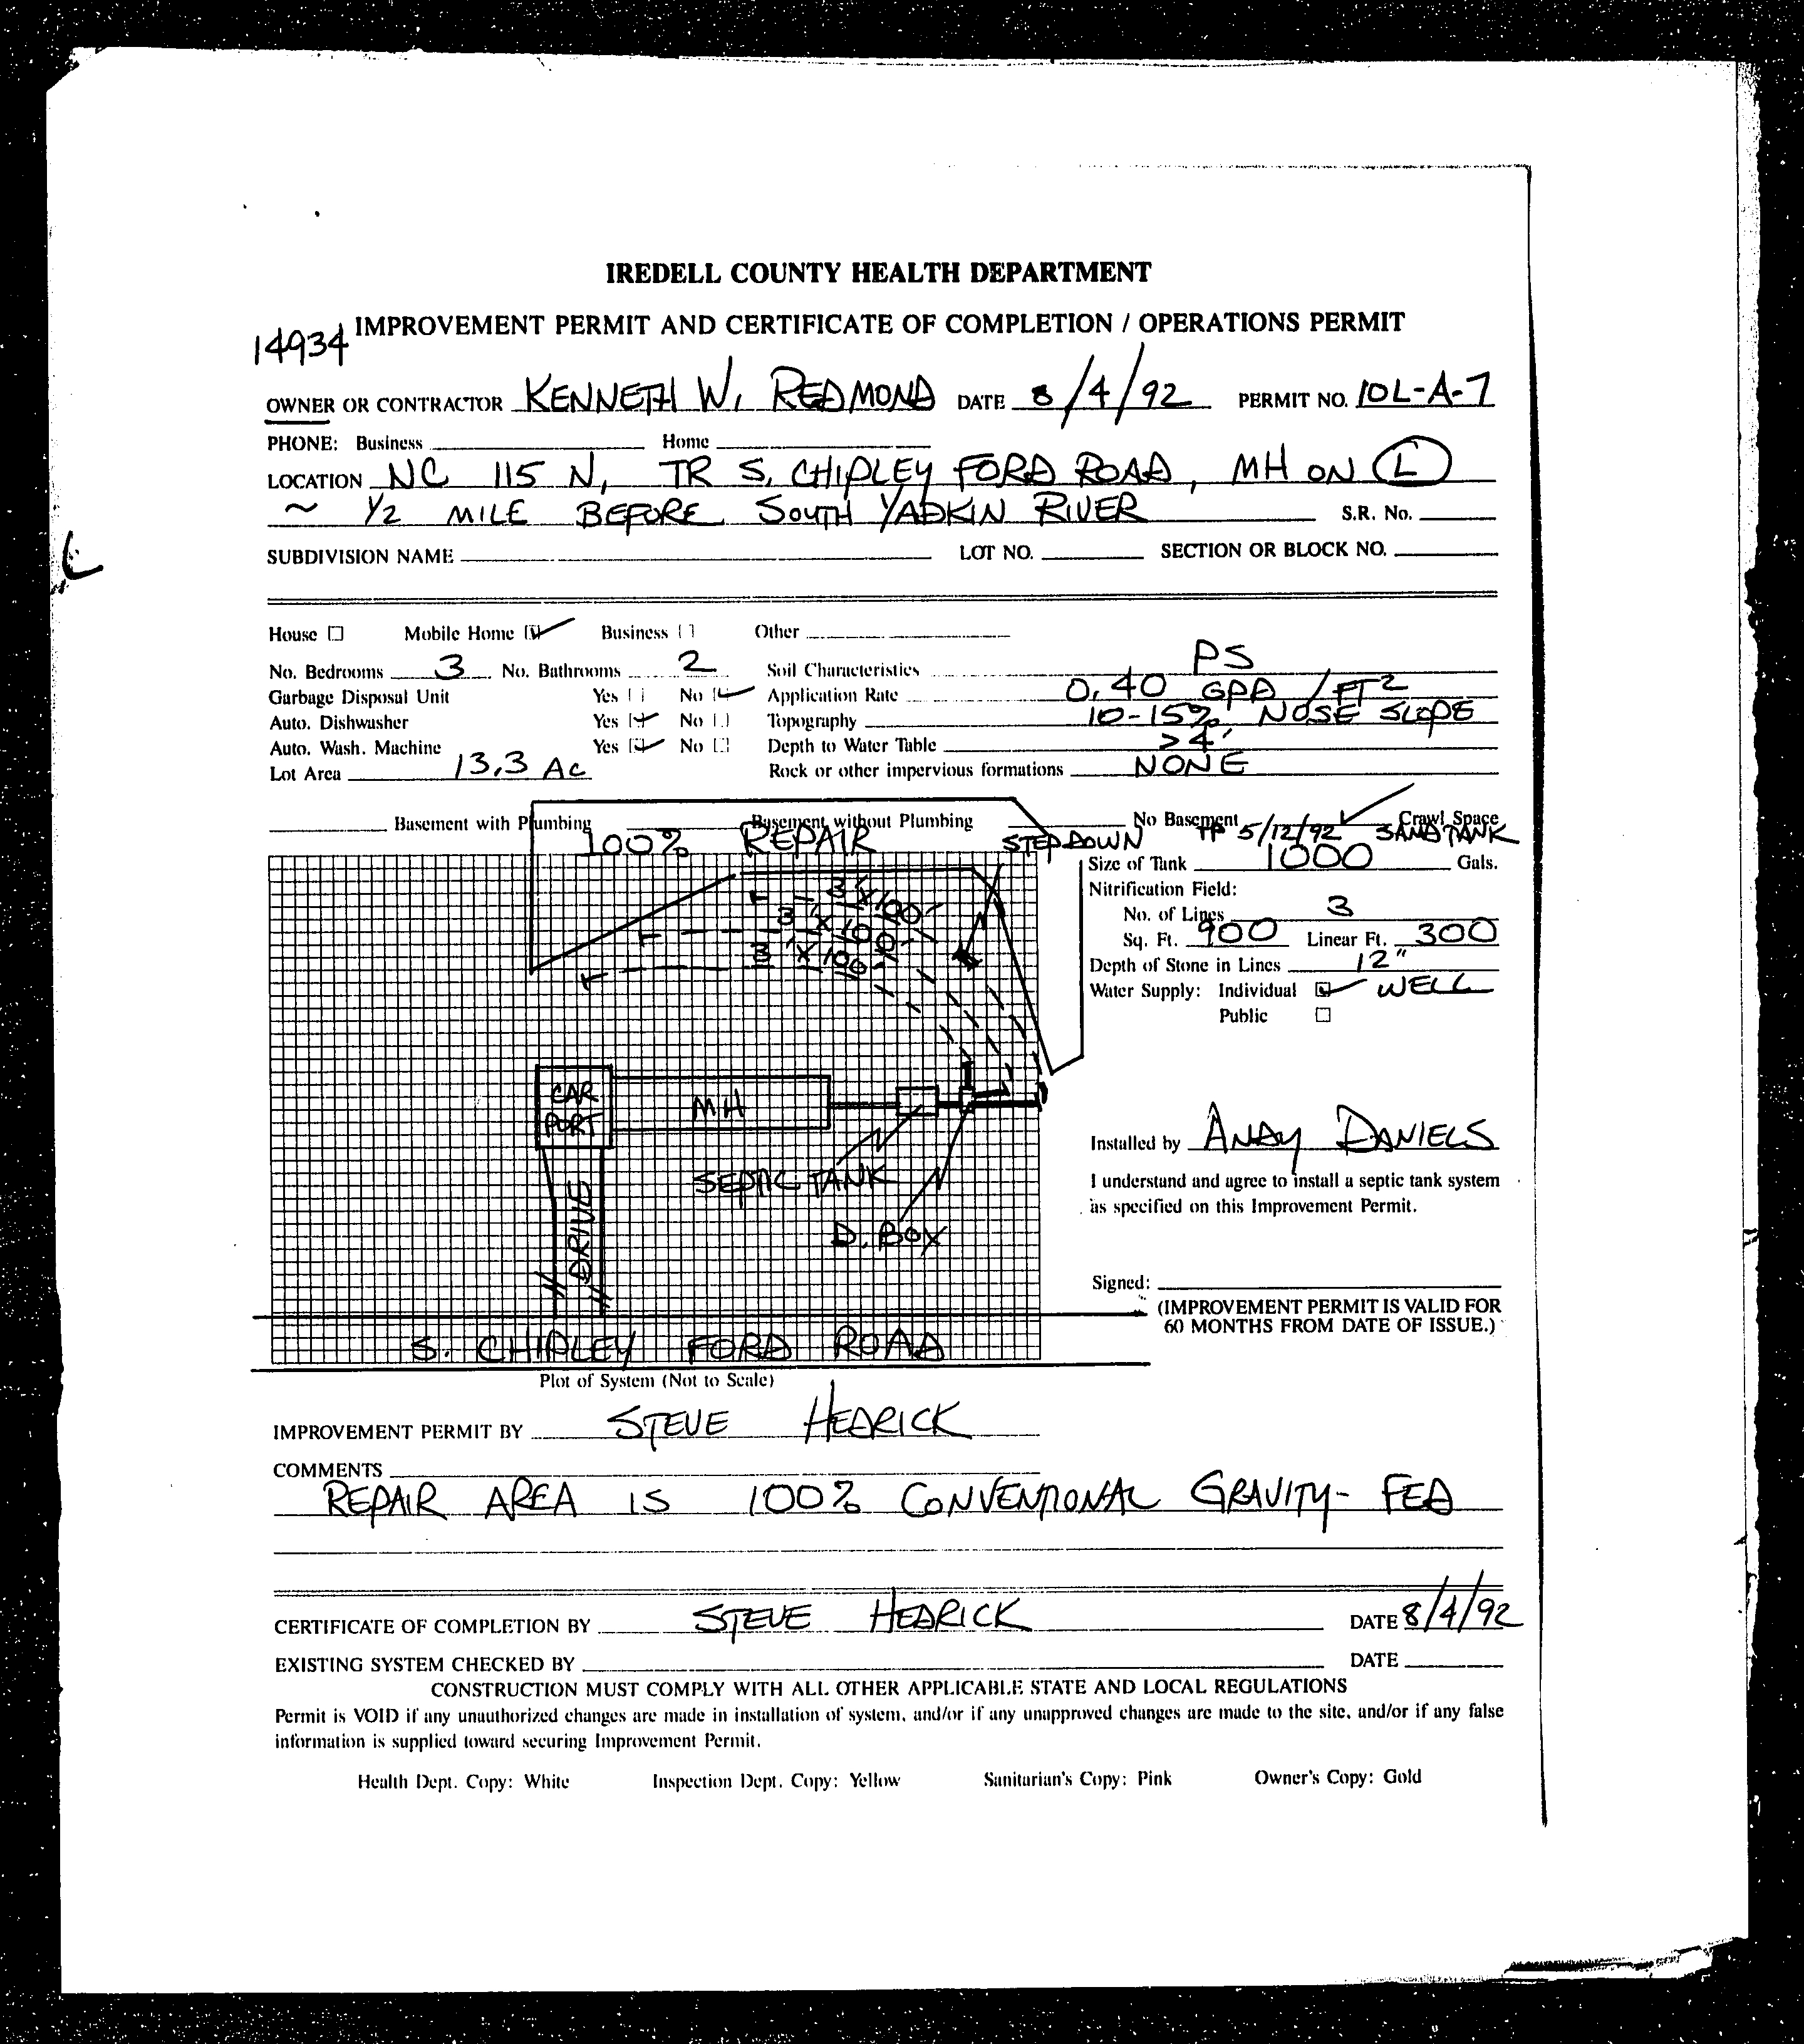 IREDELL COUNTY HEALTH DEPARTMENT
14934 IMPROVEMENT PERMIT AND CERTIFICATE OF COMPLETION / OPERATIONS PERMIT
OWNER OR CONTRACTOR KENNETH W. REDMOND DATE 8/4/92 PERMIT NO. 10L-A-7
PHONE: Business Home
LOCATION NC 115 N, TR S. CHIPLEY FORD ROAD, MH ON L
~ 1/2 MILE BEFORE SOUTH YADKIN RIVER S.R. No.
SUBDIVISION NAME LOT NO. SECTION OR BLOCK NO.
House Mobile Home Business Other
No. Bedrooms 3 No. Bathrooms 2 Soil Characteristics PS
Garbage Disposal Unit Yes No Application Rate 0.40 GPD/FT2
Auto. Dishwasher Yes No Topography 10-15% NOSE SLOPE
Auto. Wash. Machine Yes No Depth to Water Table >4'
Lot Area 13.3 AC Rock or other impervious formations NONE
Basement with Plumbing Basement without Plumbing No Basement Crawl Space
100% REPAIR STEP DOWN TP 5/12/92 SAND TANK
Size of Tank 1000 Gals.
Nitrification Field:
3'X100'
No. of Lines 3
3'X100'
Sq. Ft. 900 Linear Ft. 300
3'X100'
Depth of Stone in Lines 12"
Water Supply: Individual WELL
Public
CAR PORT
MH
Installed by ANDY DANIELS
SEPTIC TANK
I understand and agree to install a septic tank system
as specified on this Improvement Permit.
DRIVE
D. BOX
Signed:
(IMPROVEMENT PERMIT IS VALID FOR
60 MONTHS FROM DATE OF ISSUE.)
S. CHIPLEY FORD ROAD
Plot of System (Not to Scale)
IMPROVEMENT PERMIT BY STEVE HEDRICK
COMMENTS
REPAIR AREA IS 100% CONVENTIONAL GRAVITY-FED
CERTIFICATE OF COMPLETION BY STEVE HEDRICK DATE 8/4/92
EXISTING SYSTEM CHECKED BY DATE
CONSTRUCTION MUST COMPLY WITH ALL OTHER APPLICABLE STATE AND LOCAL REGULATIONS
Permit is VOID if any unauthorized changes are made in installation of system, and/or if any unapproved changes are made to the site, and/or if any false
information is supplied toward securing Improvement Permit.
Health Dept. Copy: White Inspection Dept. Copy: Yellow Sanitarian's Copy: Pink Owner's Copy: Gold